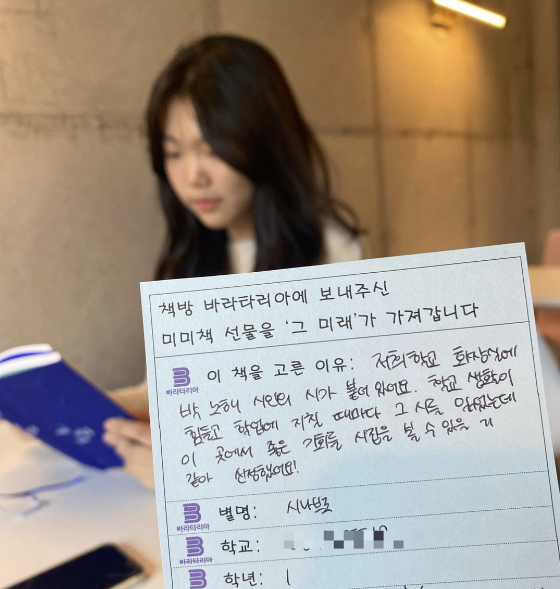 책방 바라타리아에 보내주신
미미책 선물을 '그 미래'가 가져갑니다
바라타리아 이 책을 고른 이유: 저희학교 화장실에
박노해 시인의 시가 붙어 있어요. 학교 생활이
힘들고 학업에 지칠 때마다 그 시를 읽었는데
이 곳에서 좋은 기회로 시집을 볼 수 있을 거
같아 신청했어요!
바라타리아 별명: 시나브로
바라타리아 학교:
학년: 1